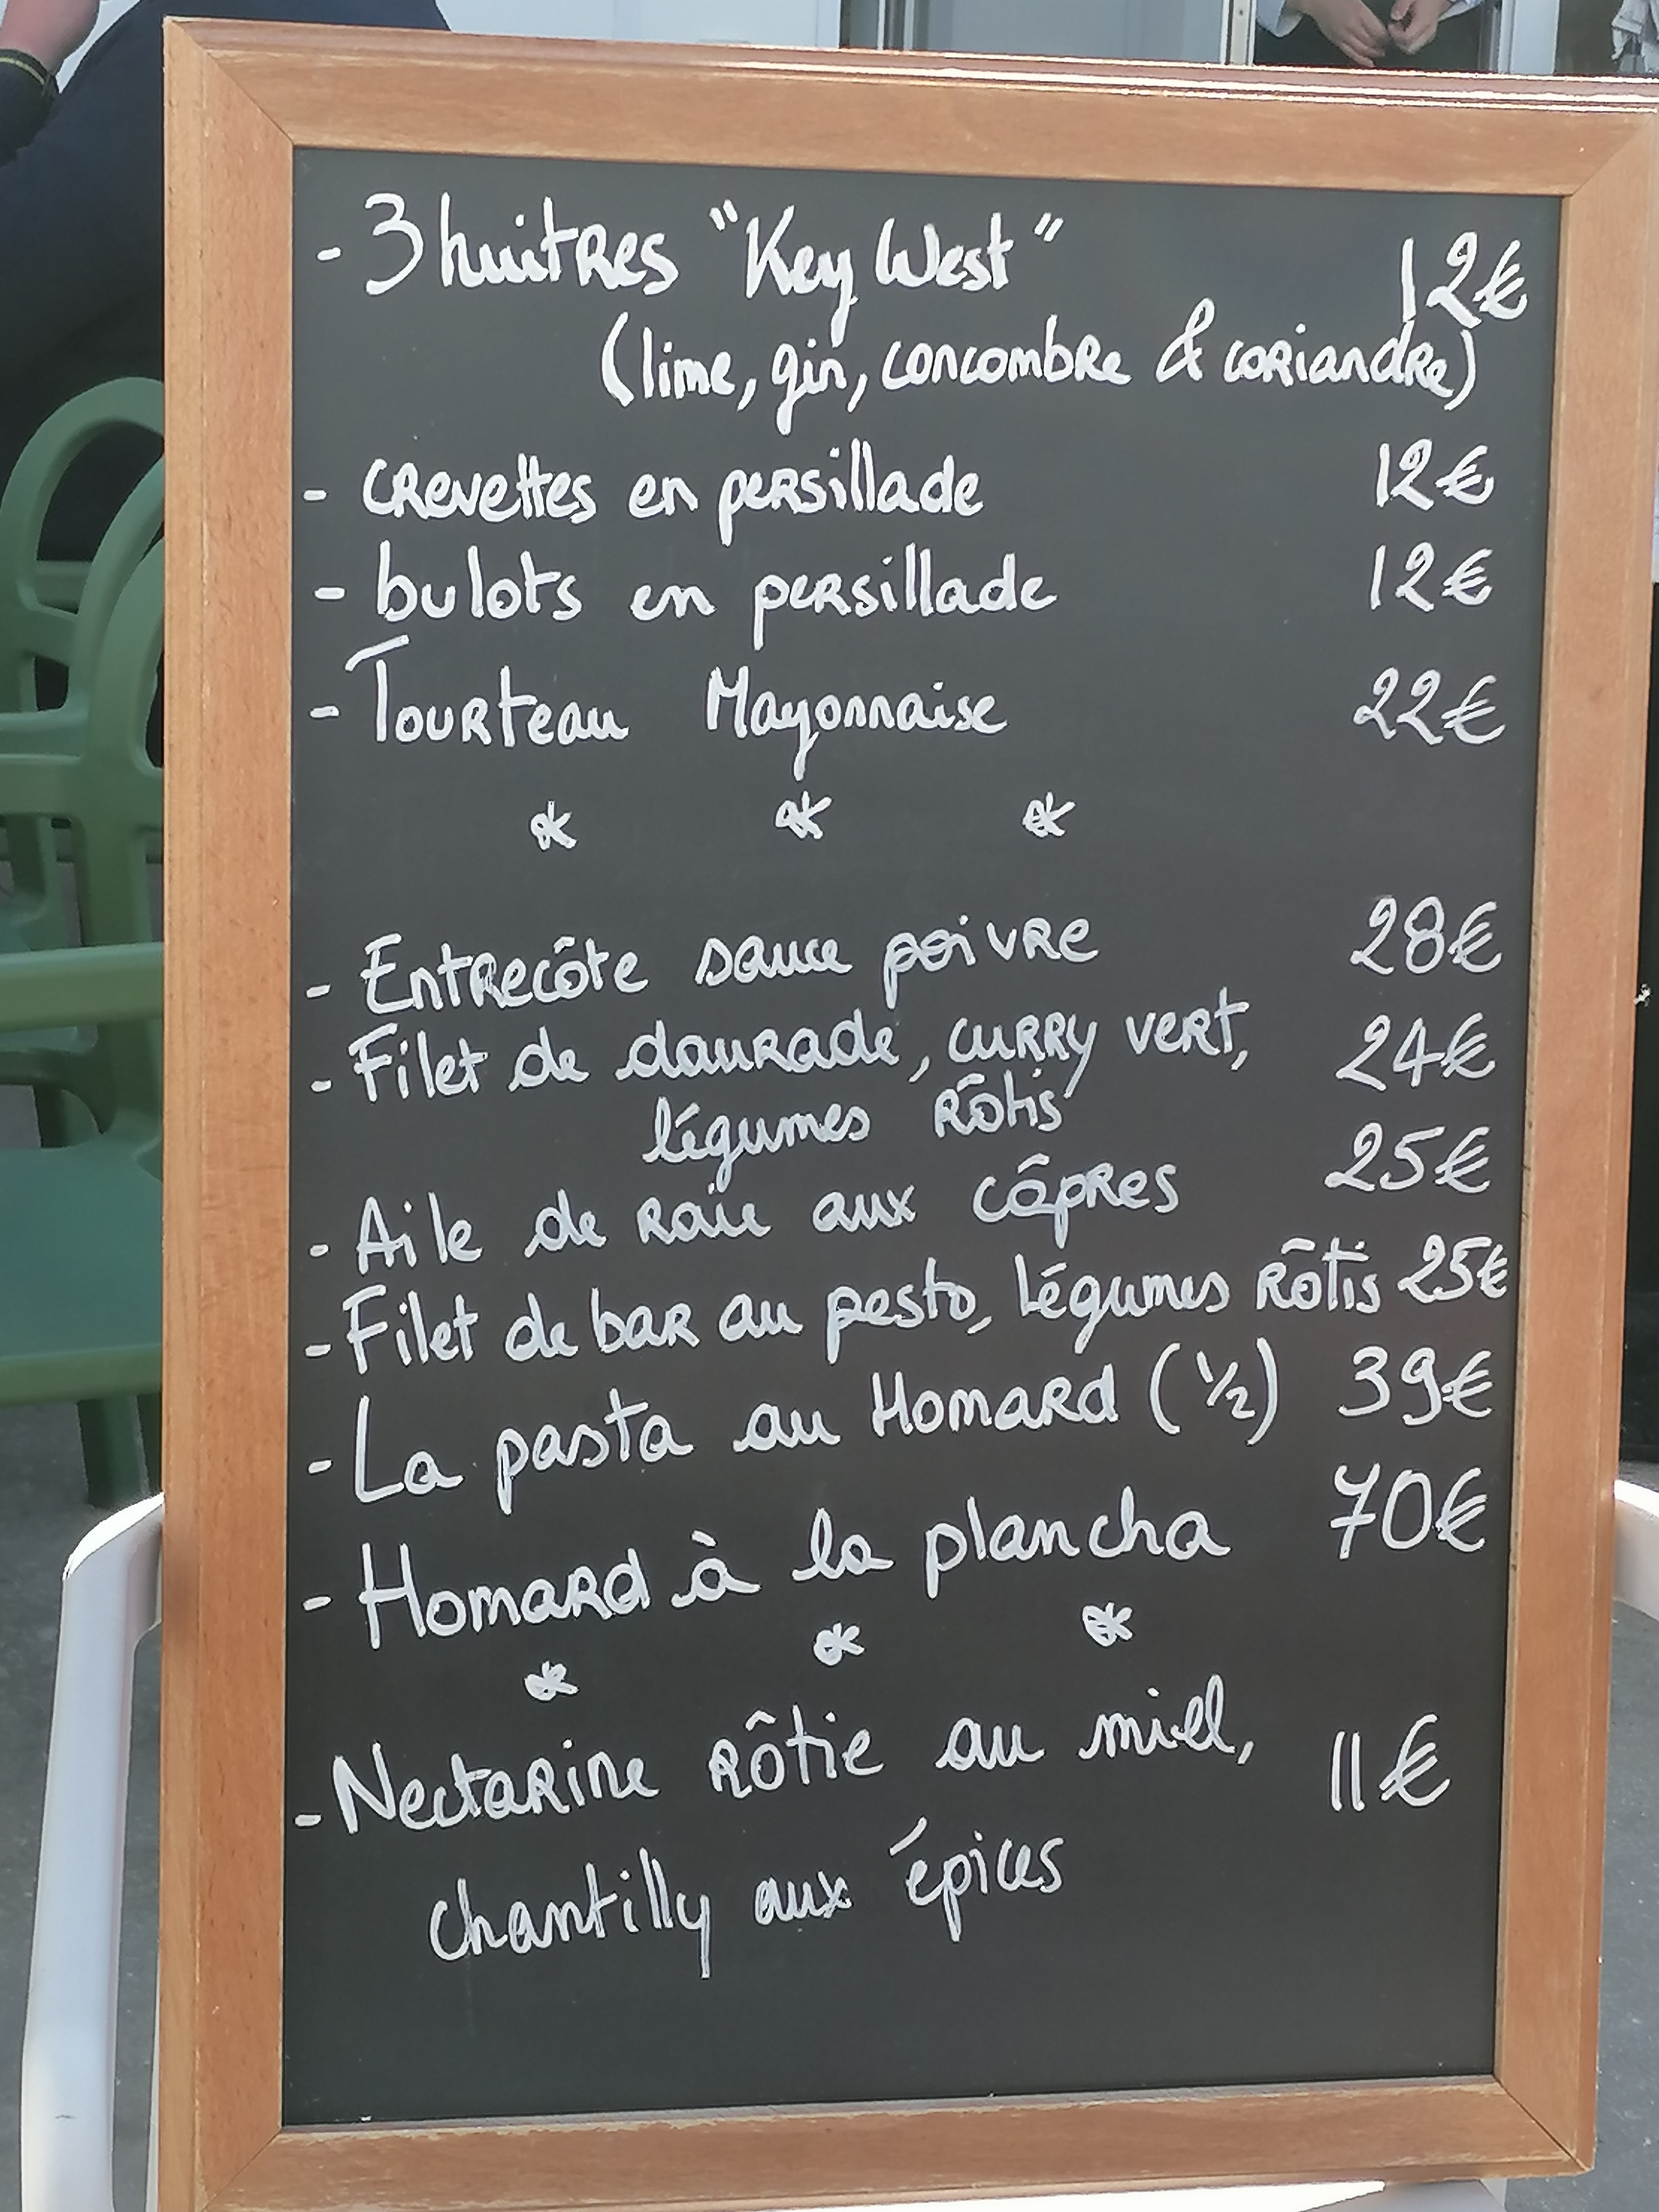 - 3 huitres "Key West" 12€
(lime, gin, concombre & coriandre)
- crevettes en persillade 12€
- bulots en persillade 12€
- Tourteau Mayonnaise 22€
* * *
- Entrecôte sauce poivre 28€
- Filet de daurade, curry vert, 24€
légumes rôtis
- Aile de raie aux câpres 25€
- Filet de bar au pesto, légumes rôtis 25€
- La pasta au Homard (1/2) 39€
- Homard à la plancha 70€
* * *
- Nectarine rôtie au miel, 11€
chantilly aux épices